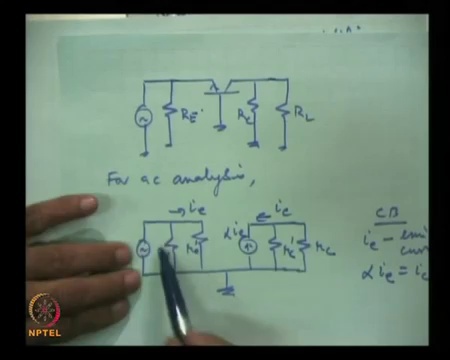 R_E
R_C
R_L
For ac analysis,
i_e
i_c
CB
αi_e
i_e - emi
curr
αi_e = i_c
NPTEL